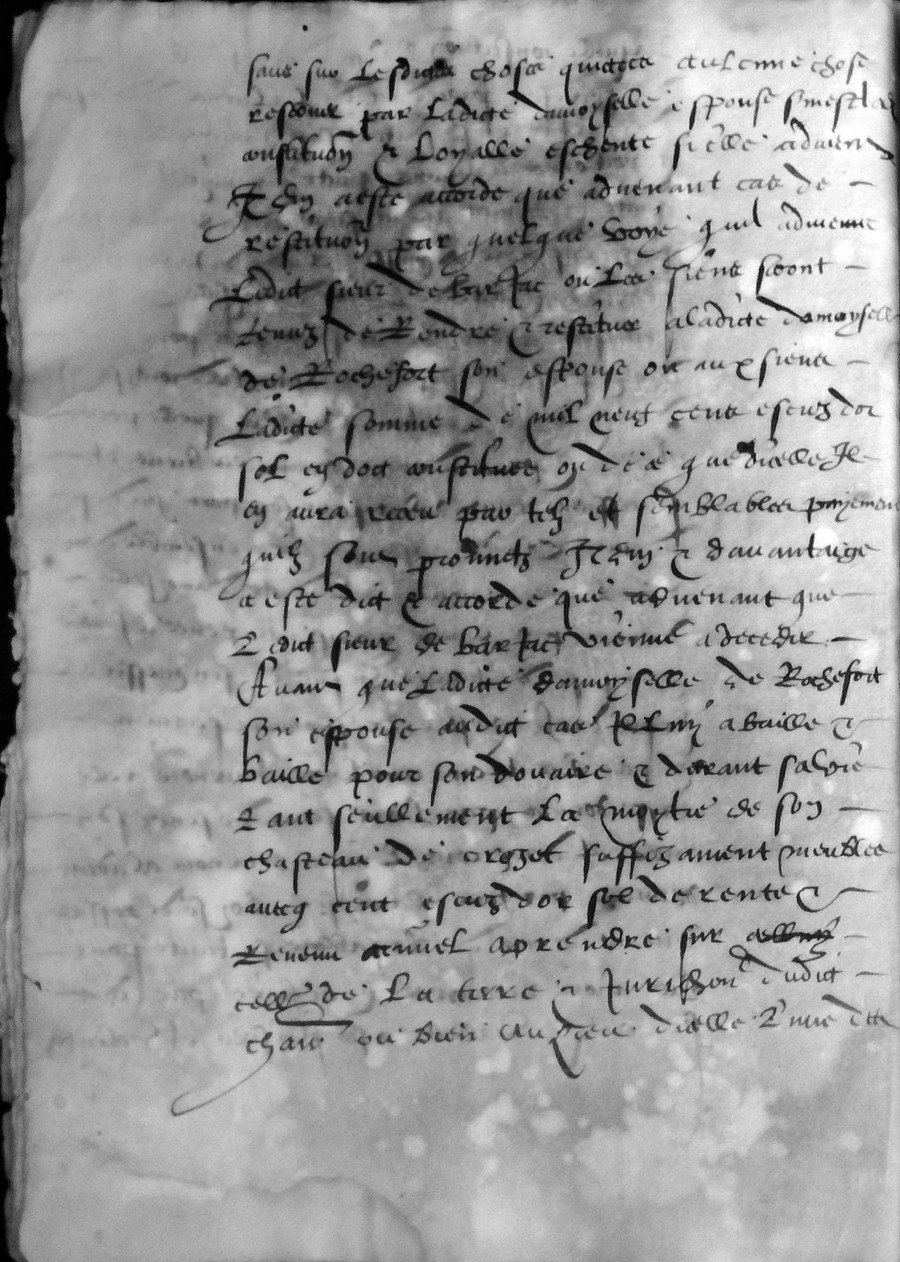 sans sur lesdites choses quictees aulcune chose
reserver par ladicte damoyselle espouse
constitution & loyalle escheute si elle advient
Item a este accorde que advenant cas de
restitution par quelque voye quil advienne
Ledit sieur de barjac ou les siens seront
tenuz de Rendre & restituer a ladicte damoyselle
de Rochefort son espouse ou aux siens
Ladicte somme de mil neuf cens escuz dor
sol en dot constituee ou de ce que dicelle Il
en aura receu par telz et semblables payemens
quilz sont prometz Item & davantaige
a este dict & accorde que advenant que
Ledict sieur de barjac vienne a deceder
Avant que ladicte damoyselle de Rochefort
son espouse audict cas Il luy a baille &
baille pour son douaire & durant sa vie
tant seullement la moytie de son
chasteau de suffizament meuble
avecq cent escuz dor sol de rente &
Revenu annuel a prendre sur
celle de La terre & Jurisdiction dudict
chau ou bien au lieu dicelle Lune des